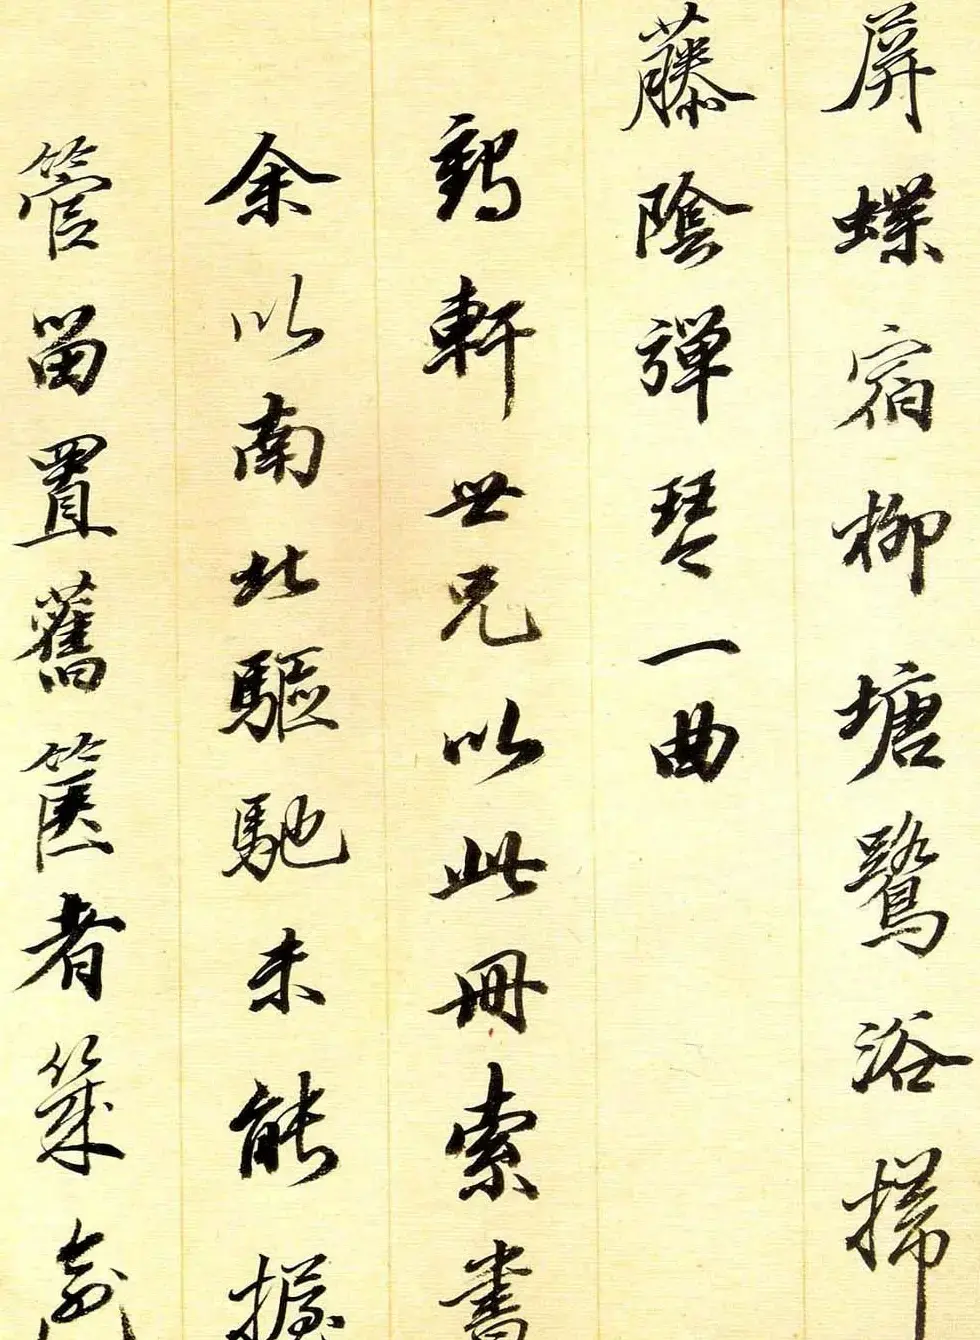 屏蝶宿柳塘鷺浴掃
藤陰彈琴一曲
軒世兄以此冊索書
余以南北驅馳未能握
管留置舊篋者